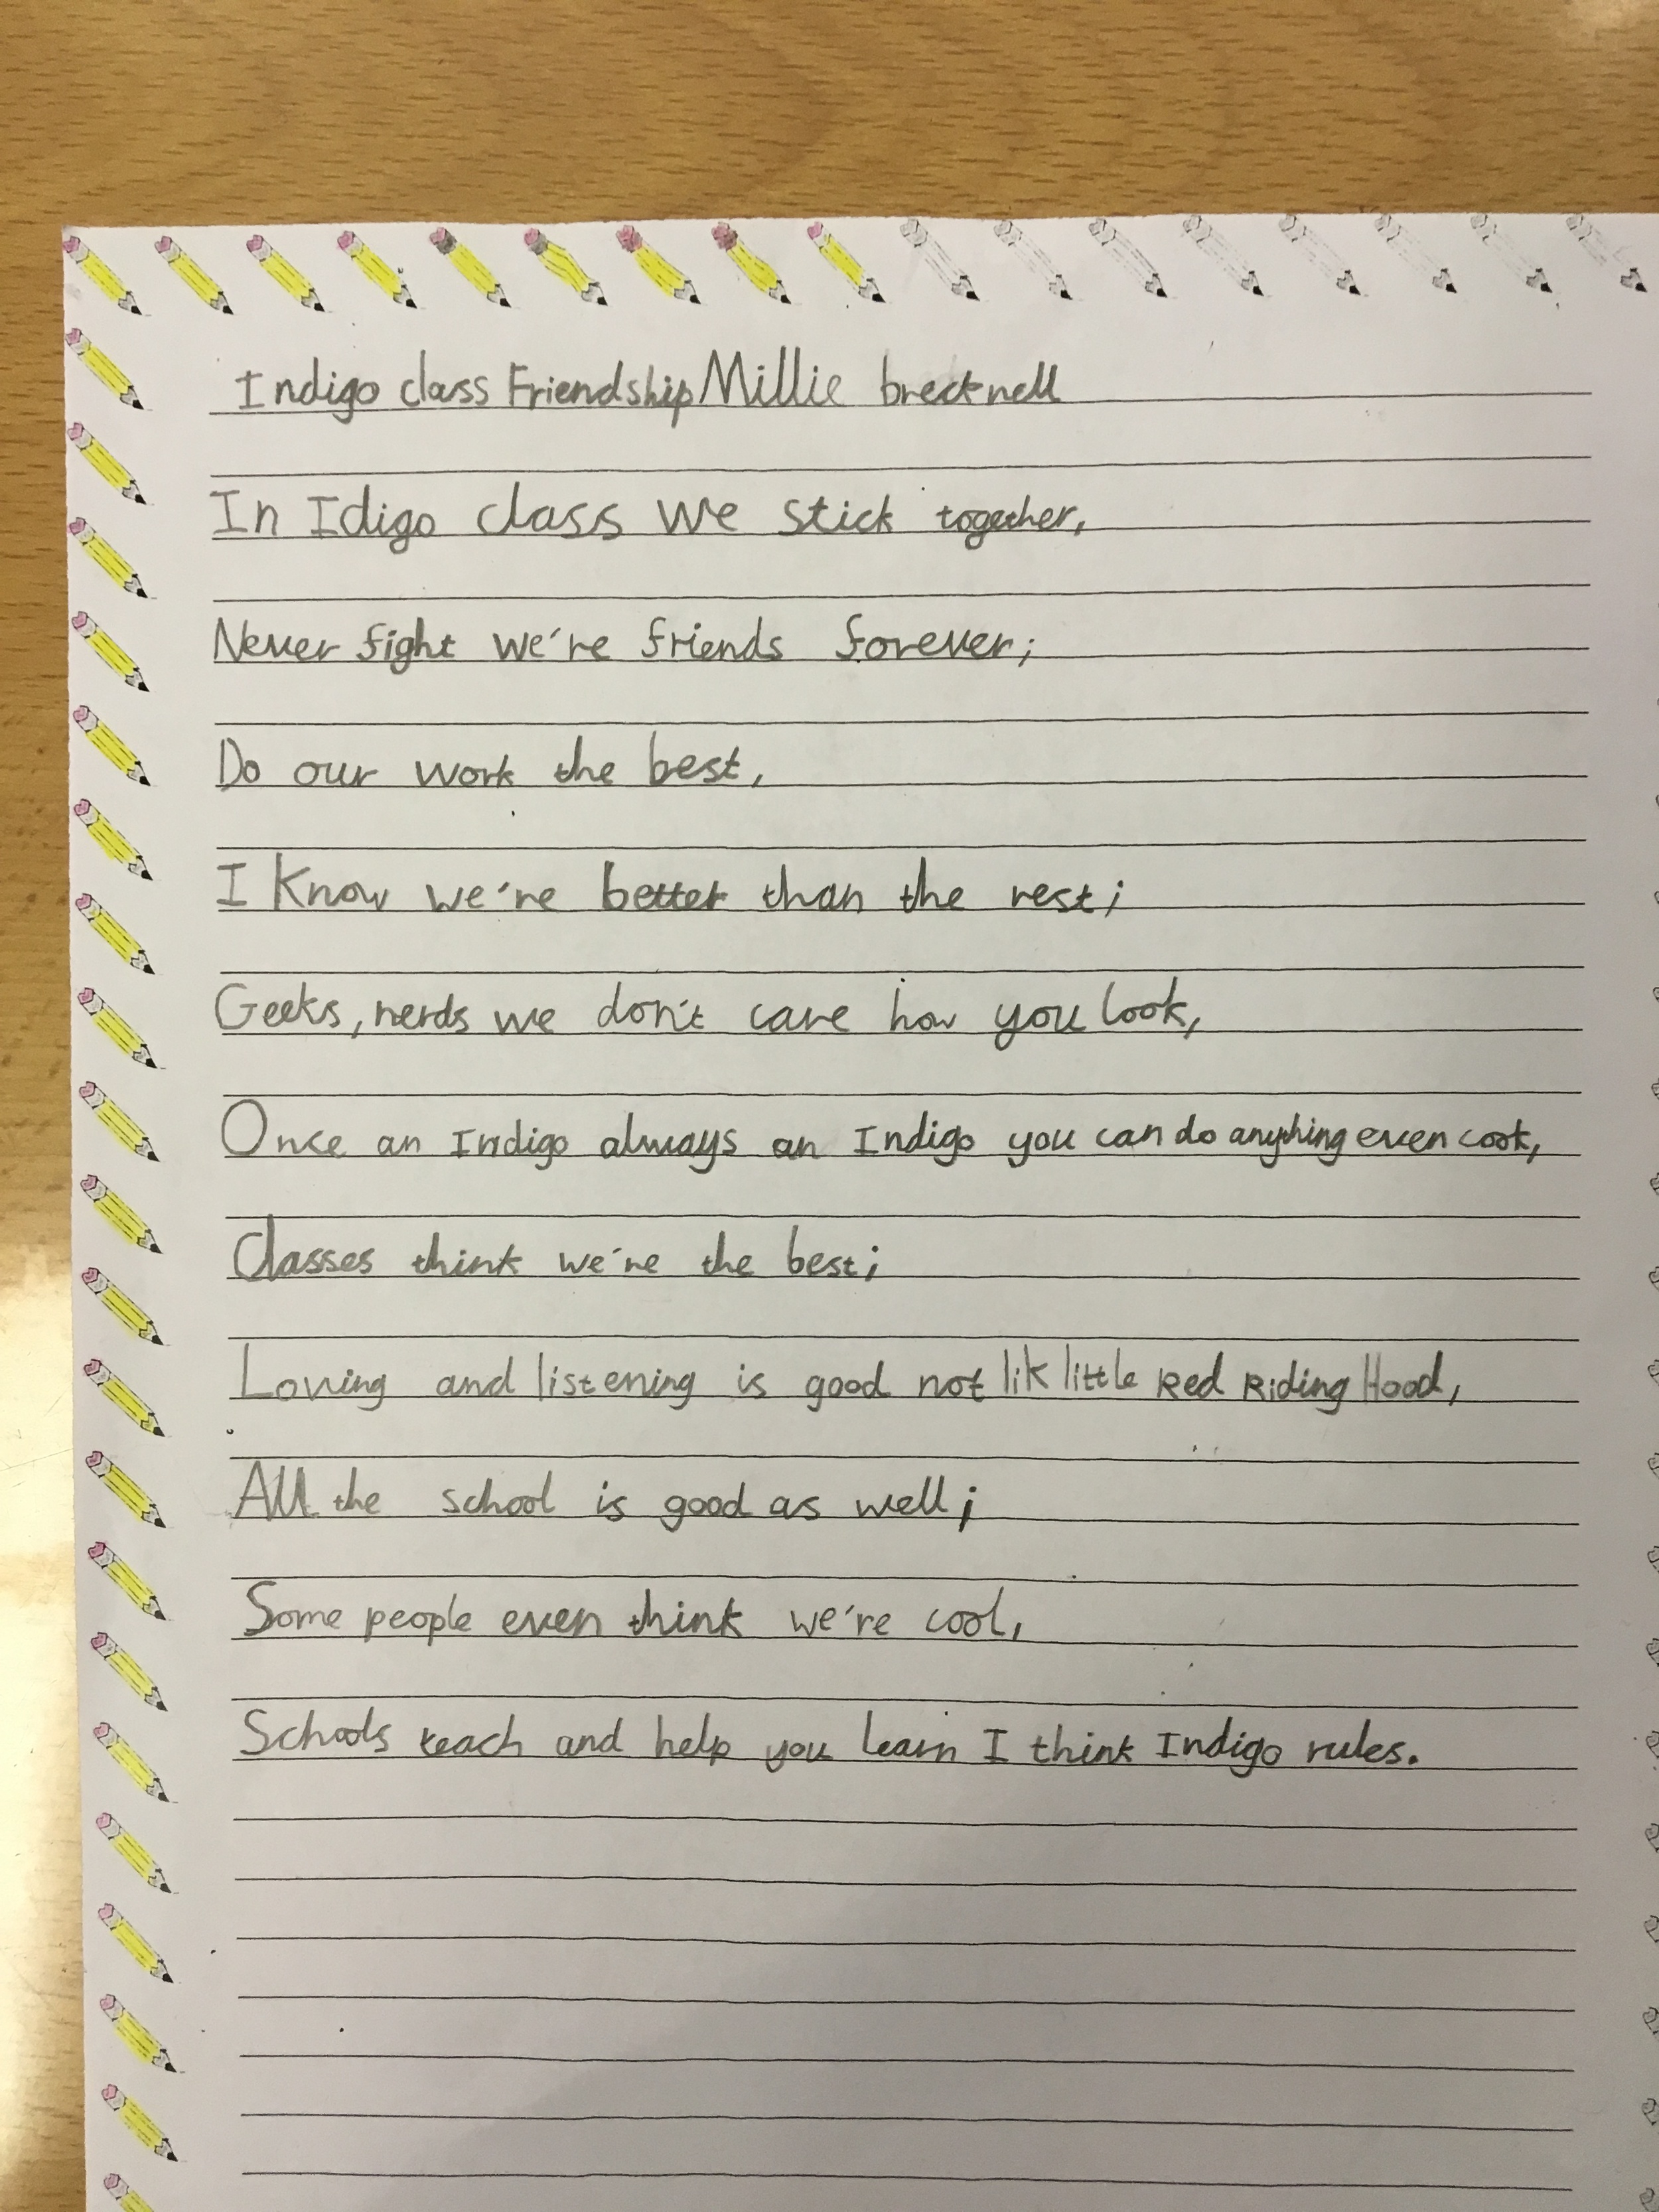 Indigo class Friendship Millie brecknell
In Idigo class we stick together,
Never fight we're friends forever;
Do our work the best,
I Know we're better than the rest;
Geeks, nerds we don't care how you look,
Once an Indigo always an Indigo you can do anything even cook,
Classes think we're the best;
Loving and listening is good not lik little Red Riding Hood,
All the school is good as well;
Some people even think we're cool,
Schools teach and help you learn I think Indigo rules.